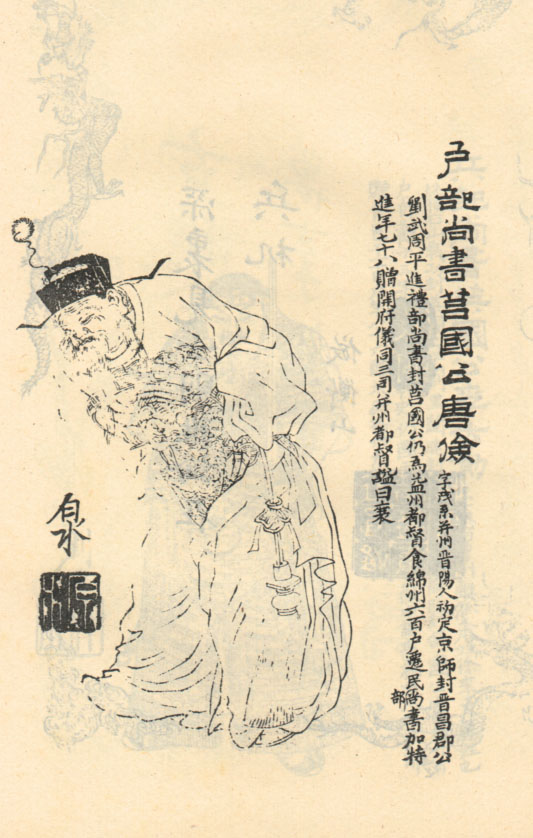 戶部尚書莒國公唐儉
字茂系并州晋陽人初定京師封晋昌郡公
劉武周平進禮部尚書封莒國公仍為益州都督食綿州六百戶遷民部尚書加特
進年七十八贈開府儀同三司并州都督謚曰襄
泉